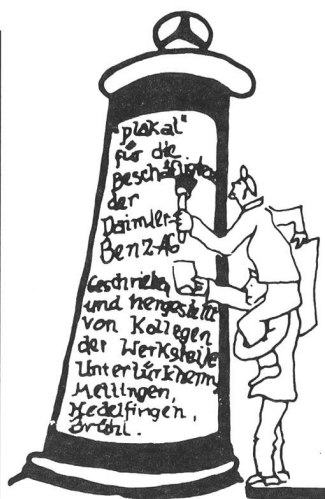 "plakat"
für die
Beschäftigten
der
Daimler-
Benz AG
Geschrieben
und hergestellt
von Kollegen
der Werksteile
Untertürkheim,
Mettingen,
Hedelfingen,
Brühl.